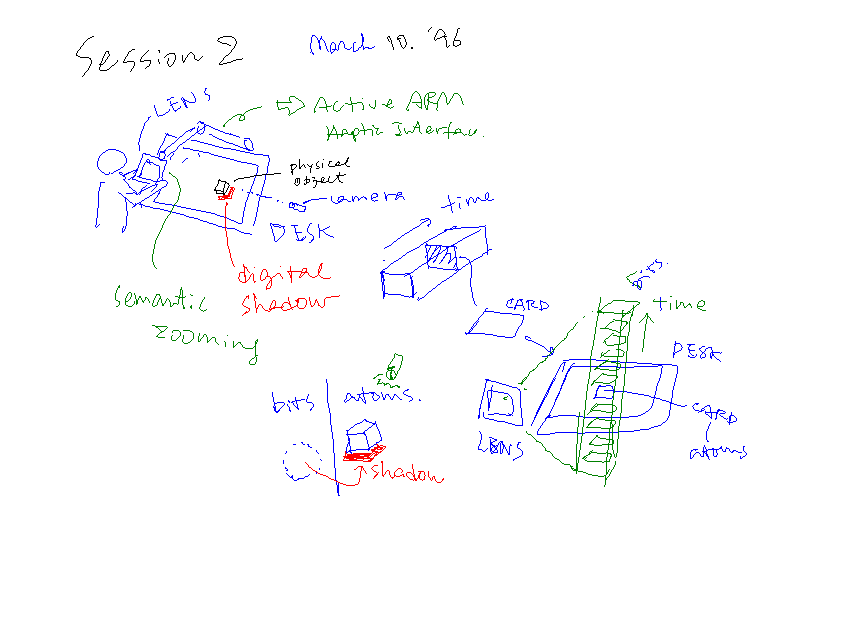 Session 2
March 10. '96
LENS
Active ARM
Haptic Interfac.
physical
object
camera
DESK
time
digital
shadow
semantic
zooming
CARD
bits.
time
DESK
bits
atoms.
LENS
CARD
atoms
shadow